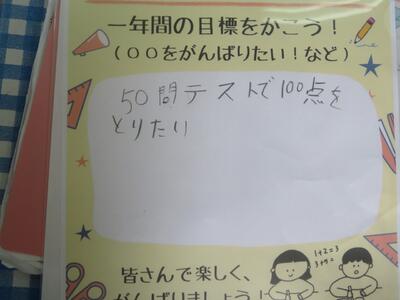 一年間の目標をかこう！
（○○をがんばりたい！など）
50問テストで100点を
とりたい
1+2=3
皆さんで楽しく、
がんばりましょう！